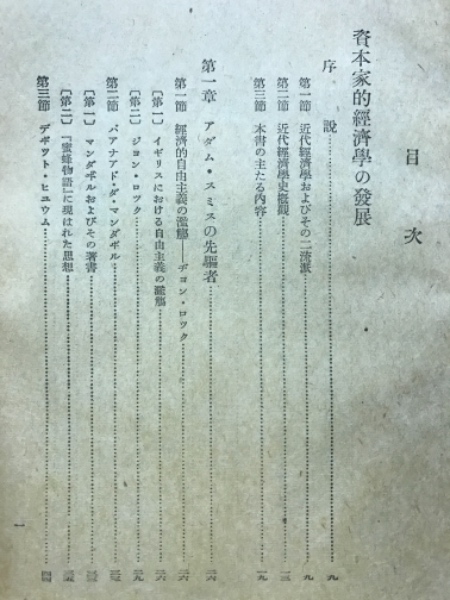 目次
資本家的經濟學の發展
序說……九
第一節 近代經濟學およびその二流派……九
第二節 近代經濟學史槪觀……一三
第三節 本書の主たる內容……一九
第一章 アダム・スミスの先驅者……二六
第一節 經濟的自由主義の濫觴——ヂョン・ロツク……二六
〔第一〕 イギリスにおける自由主義の濫觴……二六
〔第二〕 ジョン・ロツク……二九
第二節 バアナアド・ダ・マンダボル……三三
〔第一〕 マンダボルおよびその著書……三三
〔第二〕 『蜜蜂物語』に現はれた思想……三五
第三節 デボツト・ヒユウム……四四
一